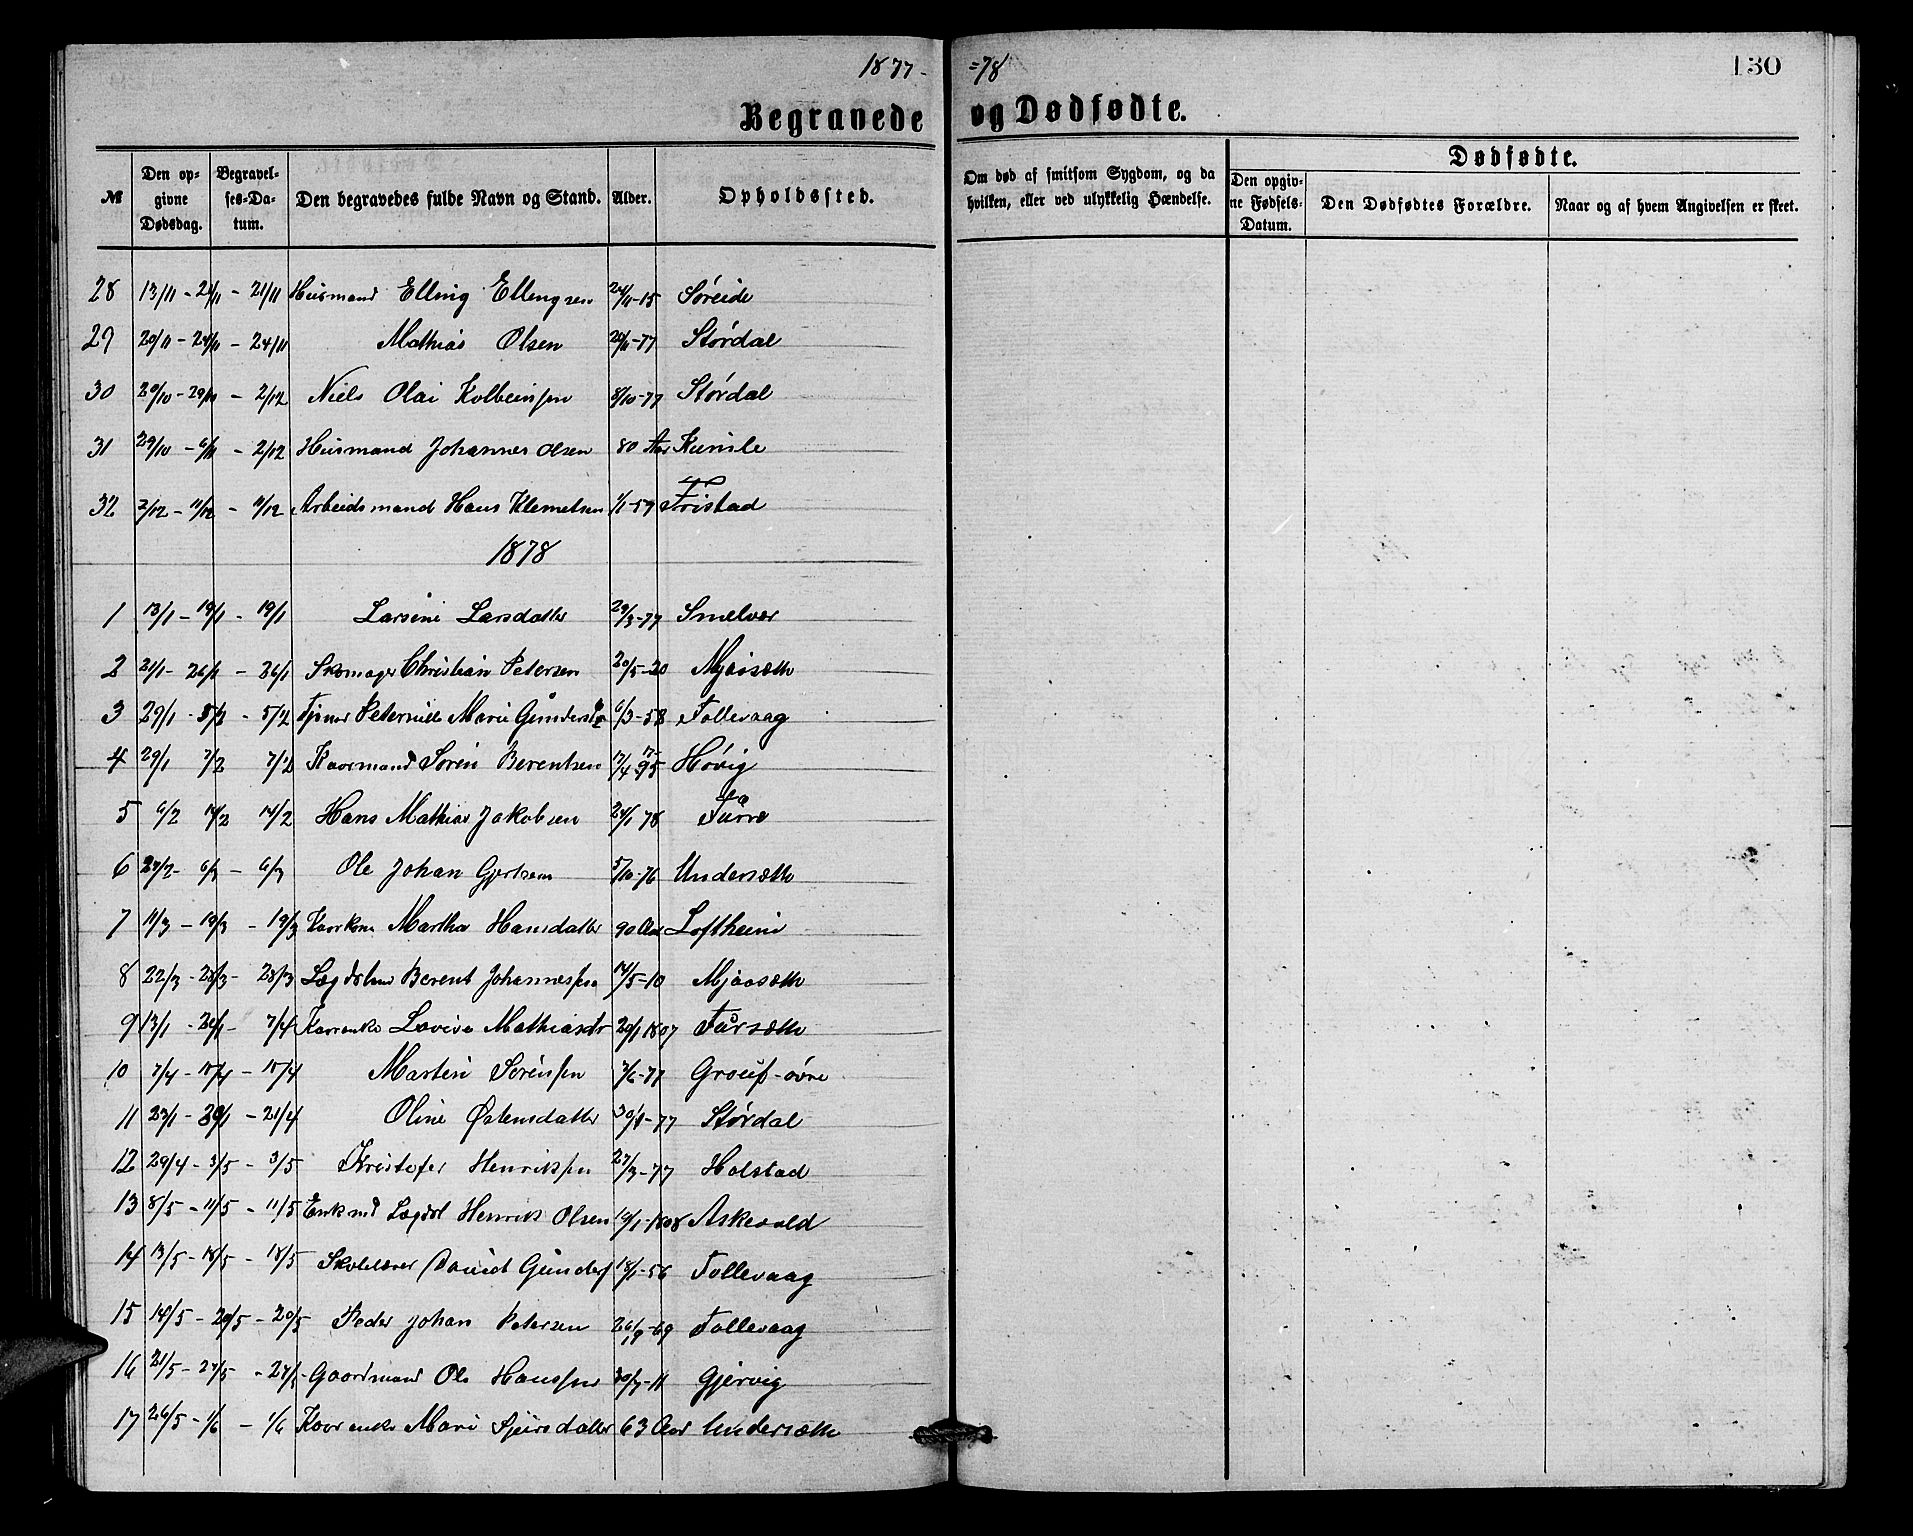 1877- =78 130
Begravede og Dødfødte.
№ Den opgivne Dødsdag. Begravelses-Datum. Den begravedes fulde Navn og Stand. Alder. Opholdssted. Om død af smitsom Sygdom, og da hvilken, eller ved ulykkelig Hændelse. Dødfødte. Den opgivne Fødsels-Datum. Den Dødfødtes Forældre. Naar og af hvem Angivelsen er skeet.
28 13/11 - 21/11 - 21/11 Husmand Elling Ellengsen 24/11-15 Søreide
29 20/11 - 24/11 - 24/11 Mathias Olsen 20/11-77 Størdal
30 20/10 - 29/10 - 2/12 Niels Olai Kolbeinsen 8/10-77 Størdal
31 29/10 - 6/11 - 2/12 Husmand Johannes Olsen 80 Aar Kumle
32 3/12 - 11/12 - 11/12 Arbeidsmand Hans Klemetsen 1/1-59 Fristad
1878
1 13/1 - 19/1 - 19/1 Larsine Larsdatter 29/3-77 Smelvær
2 21/1 - 26/1 - 26/1 Skomager Christian Petersen 20/5-20 Mjaasæth
3 29/1 - 5/2 - 5/2 Tjener Peternille Marie 6/3-58 Follevaag
4 29/1 7/2 7/2 Kaarmand Søren Berentsen 17/4 17-95 Høvig
5 6/2 14/2 14/2 Hans Mathias Jakobsen 24/1 78 Furre
6 27/2 - 6/3 - 6/3 Ole Johan Gjertsen 5/10-76 Undersæth
7 11/3 - 19/3 - 19/3 Kaarkone Martha Hansdatter 90 Aar Loftheim
8 22/3 - 28/3 - 28/3 Berent Johannessen 14/5-10 Mjaasæth
9 13/1 - 20/1 - 7/4 Kaarenke Lovise Mathiasdtr 29/1 1807 Fursæth
10 7/4 - 15/4 - 15/4 Martin Sørensen 7/6-77 Grouf-øvre
11 23/1 - 30/1 - 21/4 Oline Østensdatter 30/8-77 Størdal
12 29/4 - 3/5 - 3/5 Kristofer Henriksen 27/3-77 Holstad
13 8/5 - 11/5 - 11/5 Enkmd Lægdsl Henrik Olsen 10/1-1808 Askevold
14 13/5 - 18/5 - 18/5 Skolelærer David Gunders 18/1-56 Follevaag
15 14/5 - 20/5 - 20/5 Peder Johan Petersen 26/9-69 Follevaag
16 21/5 - 27/5 - 27/5 Gaardmand Ole Hanssen 30/7-11 Gjervig
17 26/5 - 1/6 - 1/6 Kaarenke Mari Sjursdatter 63 Aar Undersæth